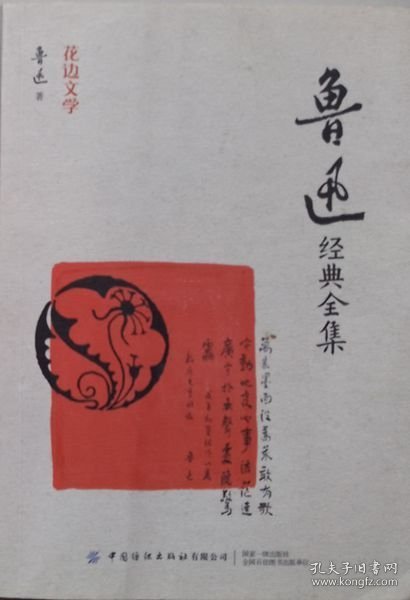 鲁迅
经典全集
花边文学
鲁迅 著
萬家墨面没蒿萊敢有歌
吟動地哀心事浩茫連
廣宇於無聲處聽驚
雷
魯迅
中国纺织出版社有限公司
国家一级出版社
全国百佳图书出版单位
孔夫子旧书网